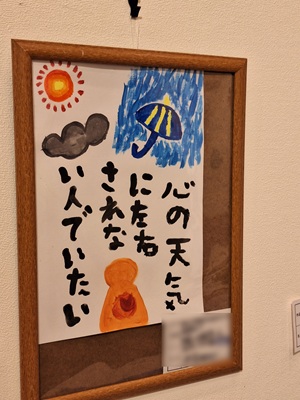 心の天気
に左右
されな
い人でいたい